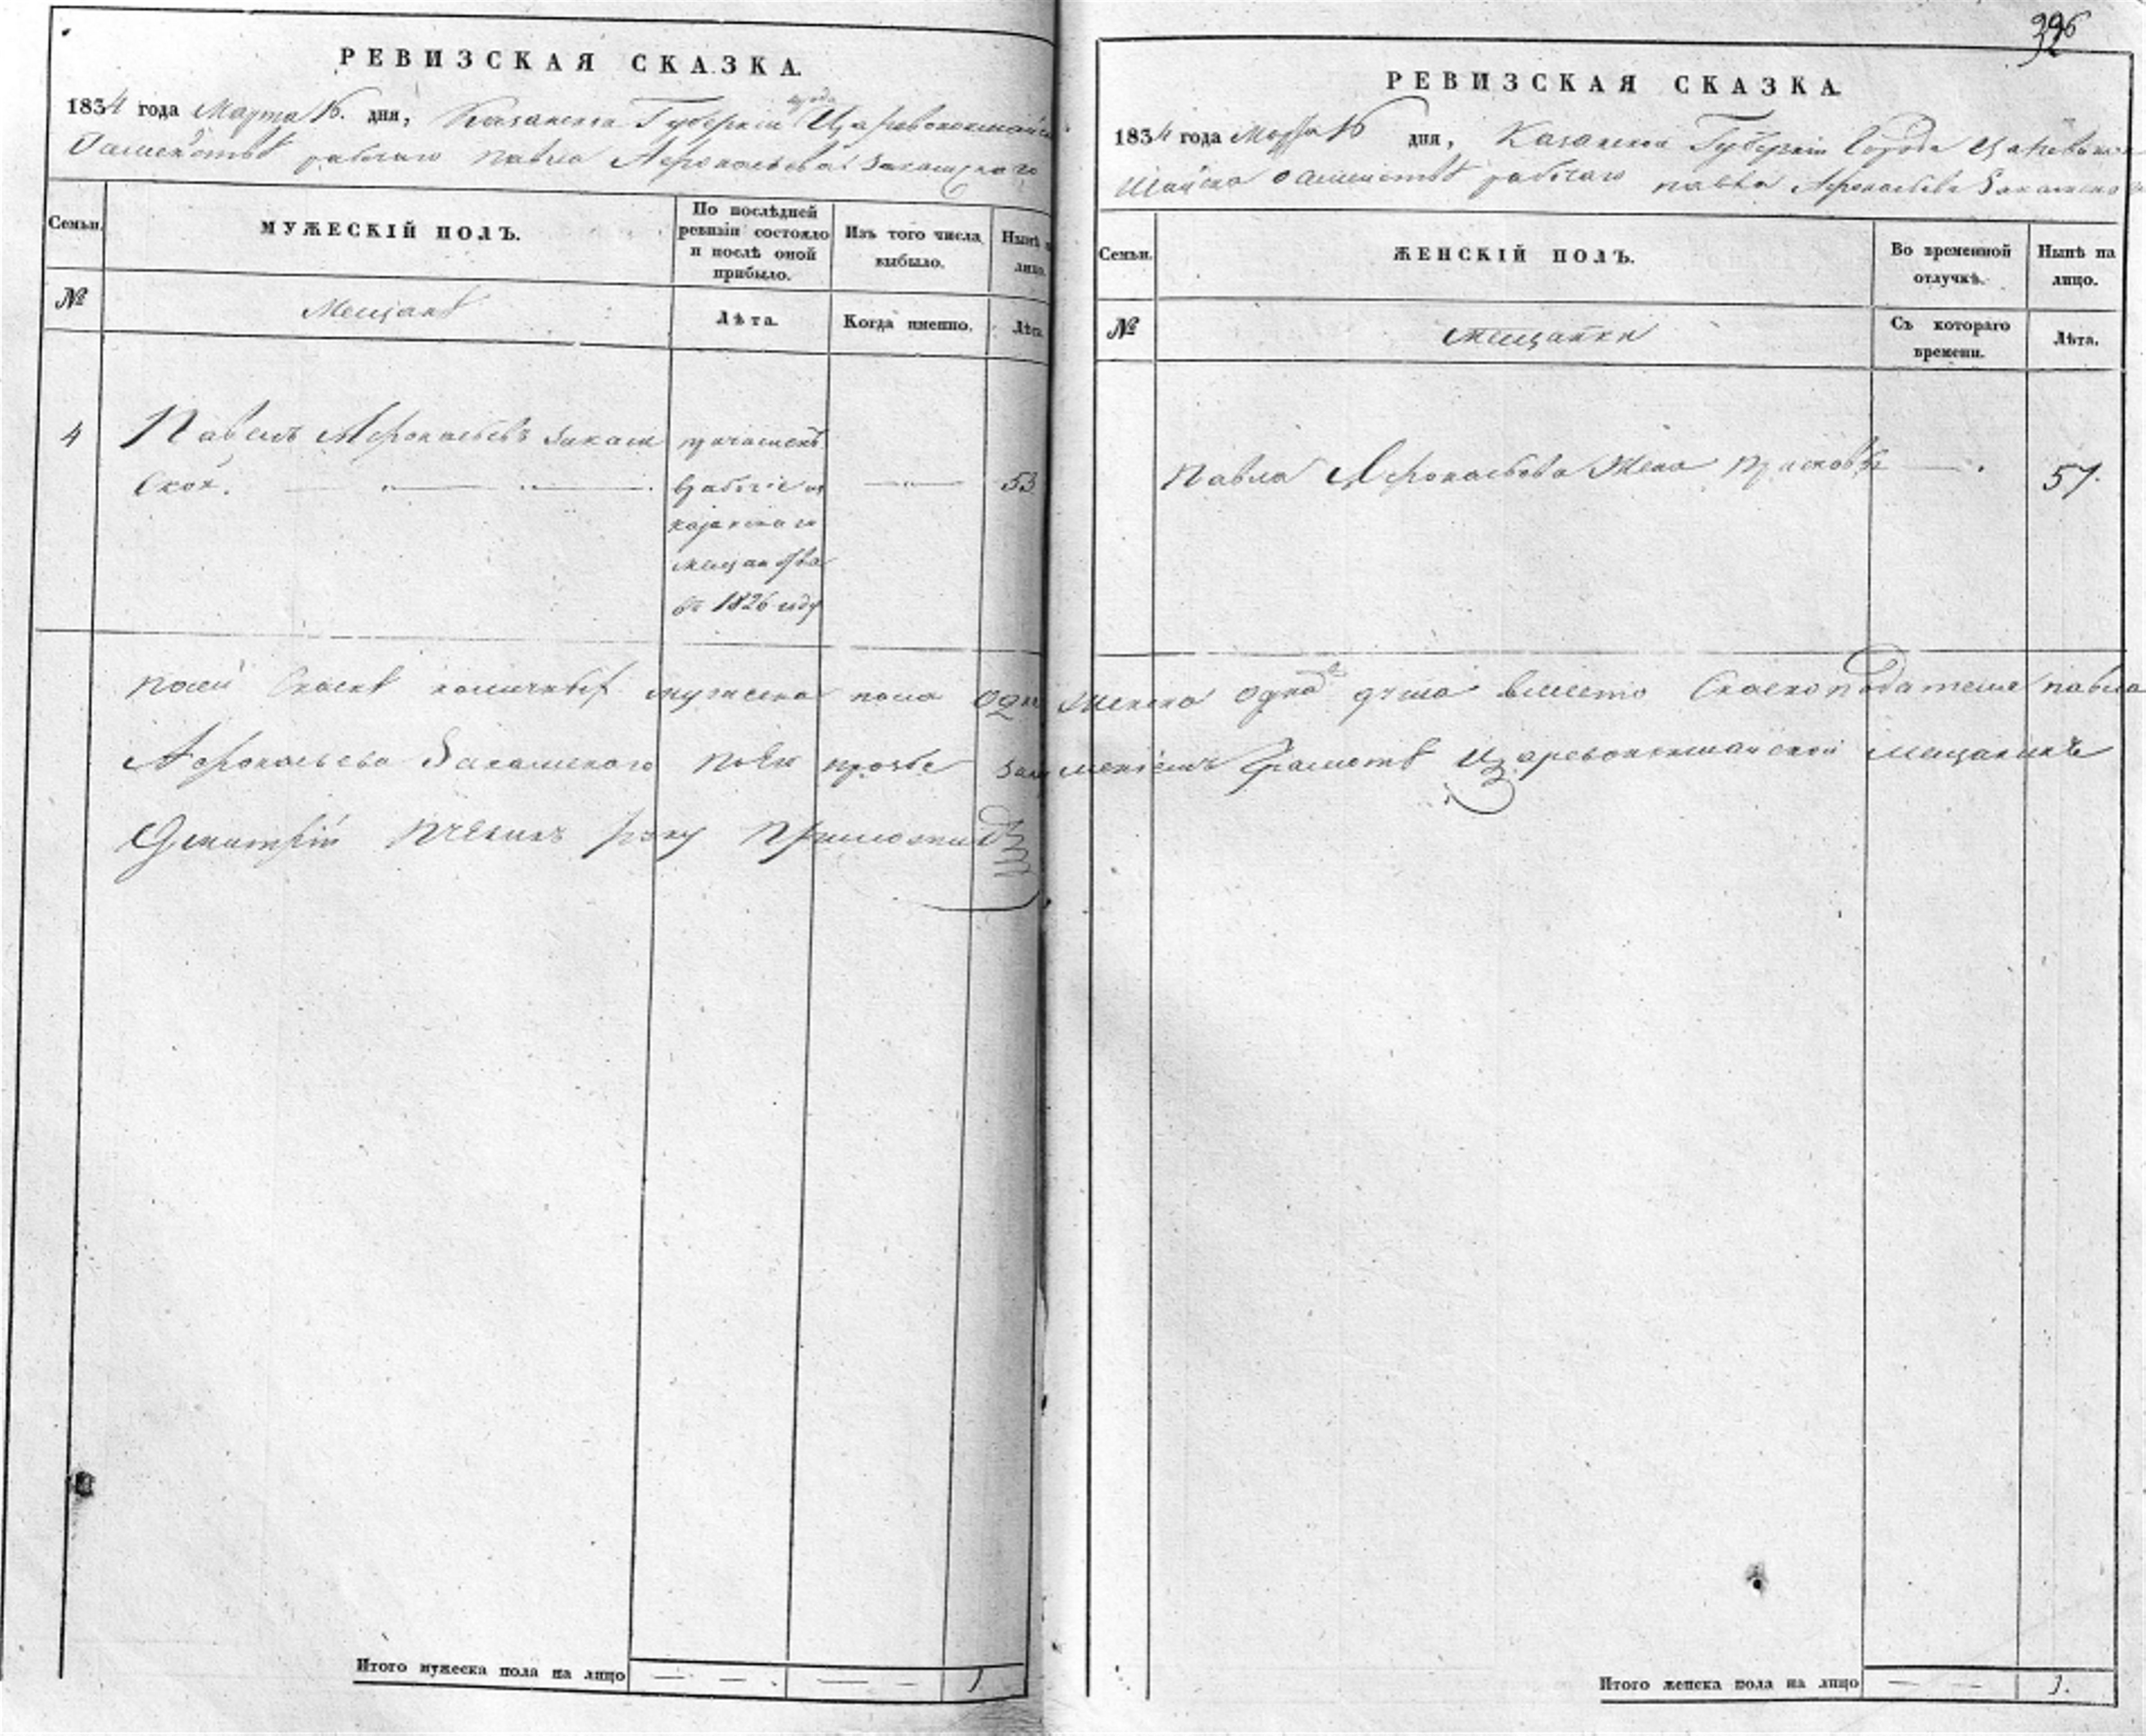 РЕВИЗСКАЯ СКАЗКА.
1834 года Марта 16. дня, Казанской Губернии города Царевококшайска
рабочаго павла Афонасьева Закамскаго
Семьи.
МУЖЕСКІЙ ПОЛЪ.
По послѣдней ревизіи состояло и послѣ оной прибыло.
Изъ того числа выбыло.
Нынѣ на лицо.
№
Мещане
Лѣта.
Когда именно.
Лѣта.
4
Павелъ Афонасьевъ Закам
ской.
53
причисленъ
в рабочіе из
казанскаго
мещанства
въ 1826 году
по сей сказке мужеска пола одна
Афонасьева Закамскаго по Ево прозбе
Дмитрій руку приложилъ
Итого мужеска пола на лицо
1
996
РЕВИЗСКАЯ СКАЗКА.
1834 года Марта 16 дня, Казанской Губерніи Города Царевокок
шайска рабочаго павла Афонасьева Закамскаго
Семьи.
ЖЕНСКІЙ ПОЛЪ.
Во временной отлучкѣ.
Нынѣ на лицо.
№
Мещанки
Съ котораго времени.
Лѣта.
Павла Афонасьева Жена Прасковья
57.
женска одна душа вместо Сказкоподателя павла
грамоте Царевококшайской мещанинъ
Итого женска пола на лицо
1.